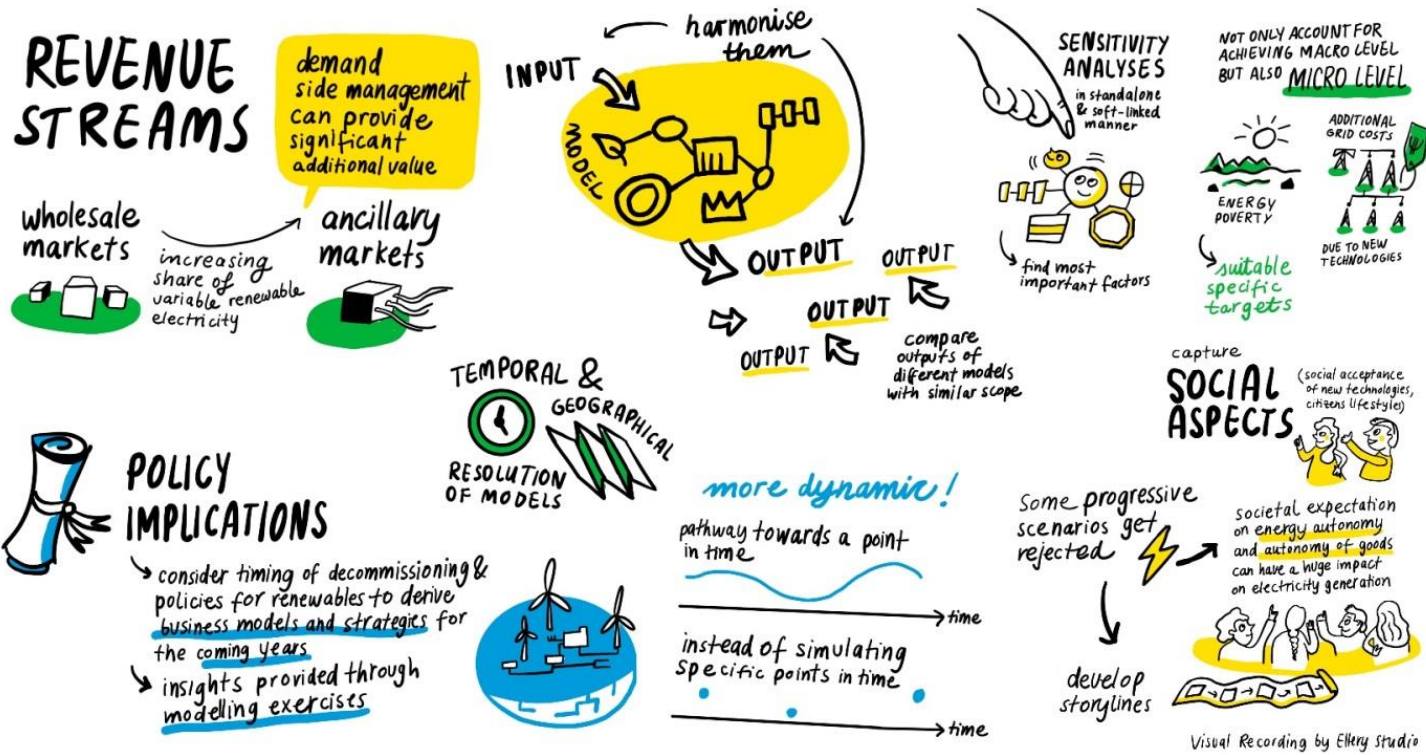 REVENUE
STREAMS
demand
side management
can provide
significant
additional value
wholesale
markets
increasing
share of
variable renewable
electricity
ancillary
markets
harmonise
them
INPUT
MODEL
OUTPUT
OUTPUT
OUTPUT
OUTPUT
compare
outputs of
different models
with similar scope
SENSITIVITY
ANALYSES
in standalone
& soft-linked
manner
find most
important factors
NOT ONLY ACCOUNT FOR
ACHIEVING MACRO LEVEL
BUT ALSO MICRO LEVEL
ENERGY
POVERTY
ADDITIONAL
GRID COSTS
DUE TO NEW
TECHNOLOGIES
suitable
specific
targets
TEMPORAL &
GEOGRAPHICAL
RESOLUTION
OF MODELS
POLICY
IMPLICATIONS
consider timing of decommissioning &
policies for renewables to derive
business models and strategies for
the coming years
insights provided through
modelling exercises
more dynamic!
pathway towards a point
in time
time
instead of simulating
specific points in time
time
capture
SOCIAL
ASPECTS
(social acceptance
of new technologies,
citizens lifestyles)
Some progressive
scenarios get
rejected
societal expectation
on energy autonomy
and autonomy of goods
can have a huge impact
on electricity generation
develop
storylines
Visual Recording by Ellery Studio